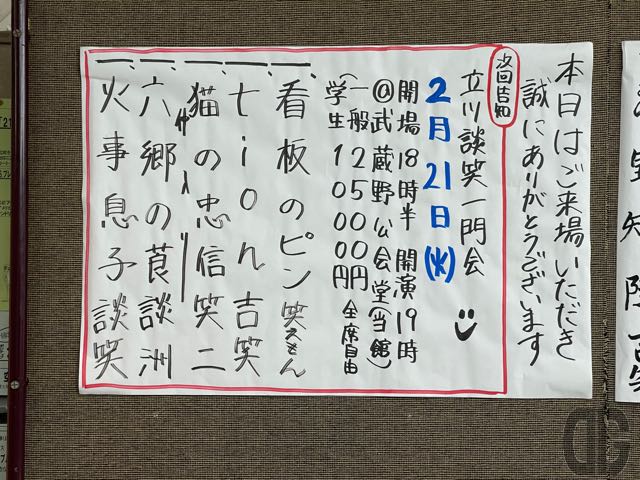 本日はご来場いただき
誠にありがとうございます
次回告知
立川談笑一門会
2月21日(水)
開場18時半 開演19時
@武蔵野公会堂(当館)
(一般2500円
学生1000円 全席自由
一、看板のピン 笑えもん
一、tion 吉笑
一、猫の忠信 笑二
一、六郷の 談洲
一、火事息子 談笑